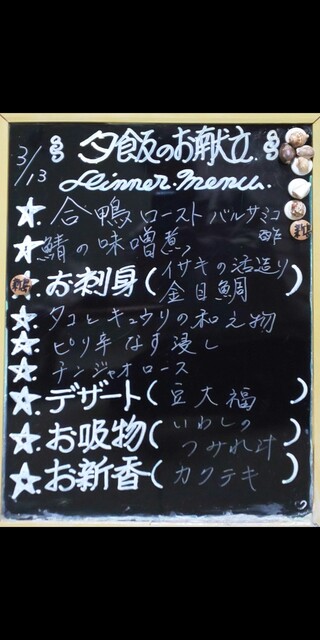 3/13
夕飯のお献立
Dinner.menu.
合鴨ローストバルサミコ酢
鯖の味噌煮
お刺身(イサキの活造り
金目鯛)
タコとキュウリの和え物
ピリ辛なす浸し
チンジャオロース
デザート(豆大福)
お吸物(いわしの
つみれ汁)
お新香(カクテキ)